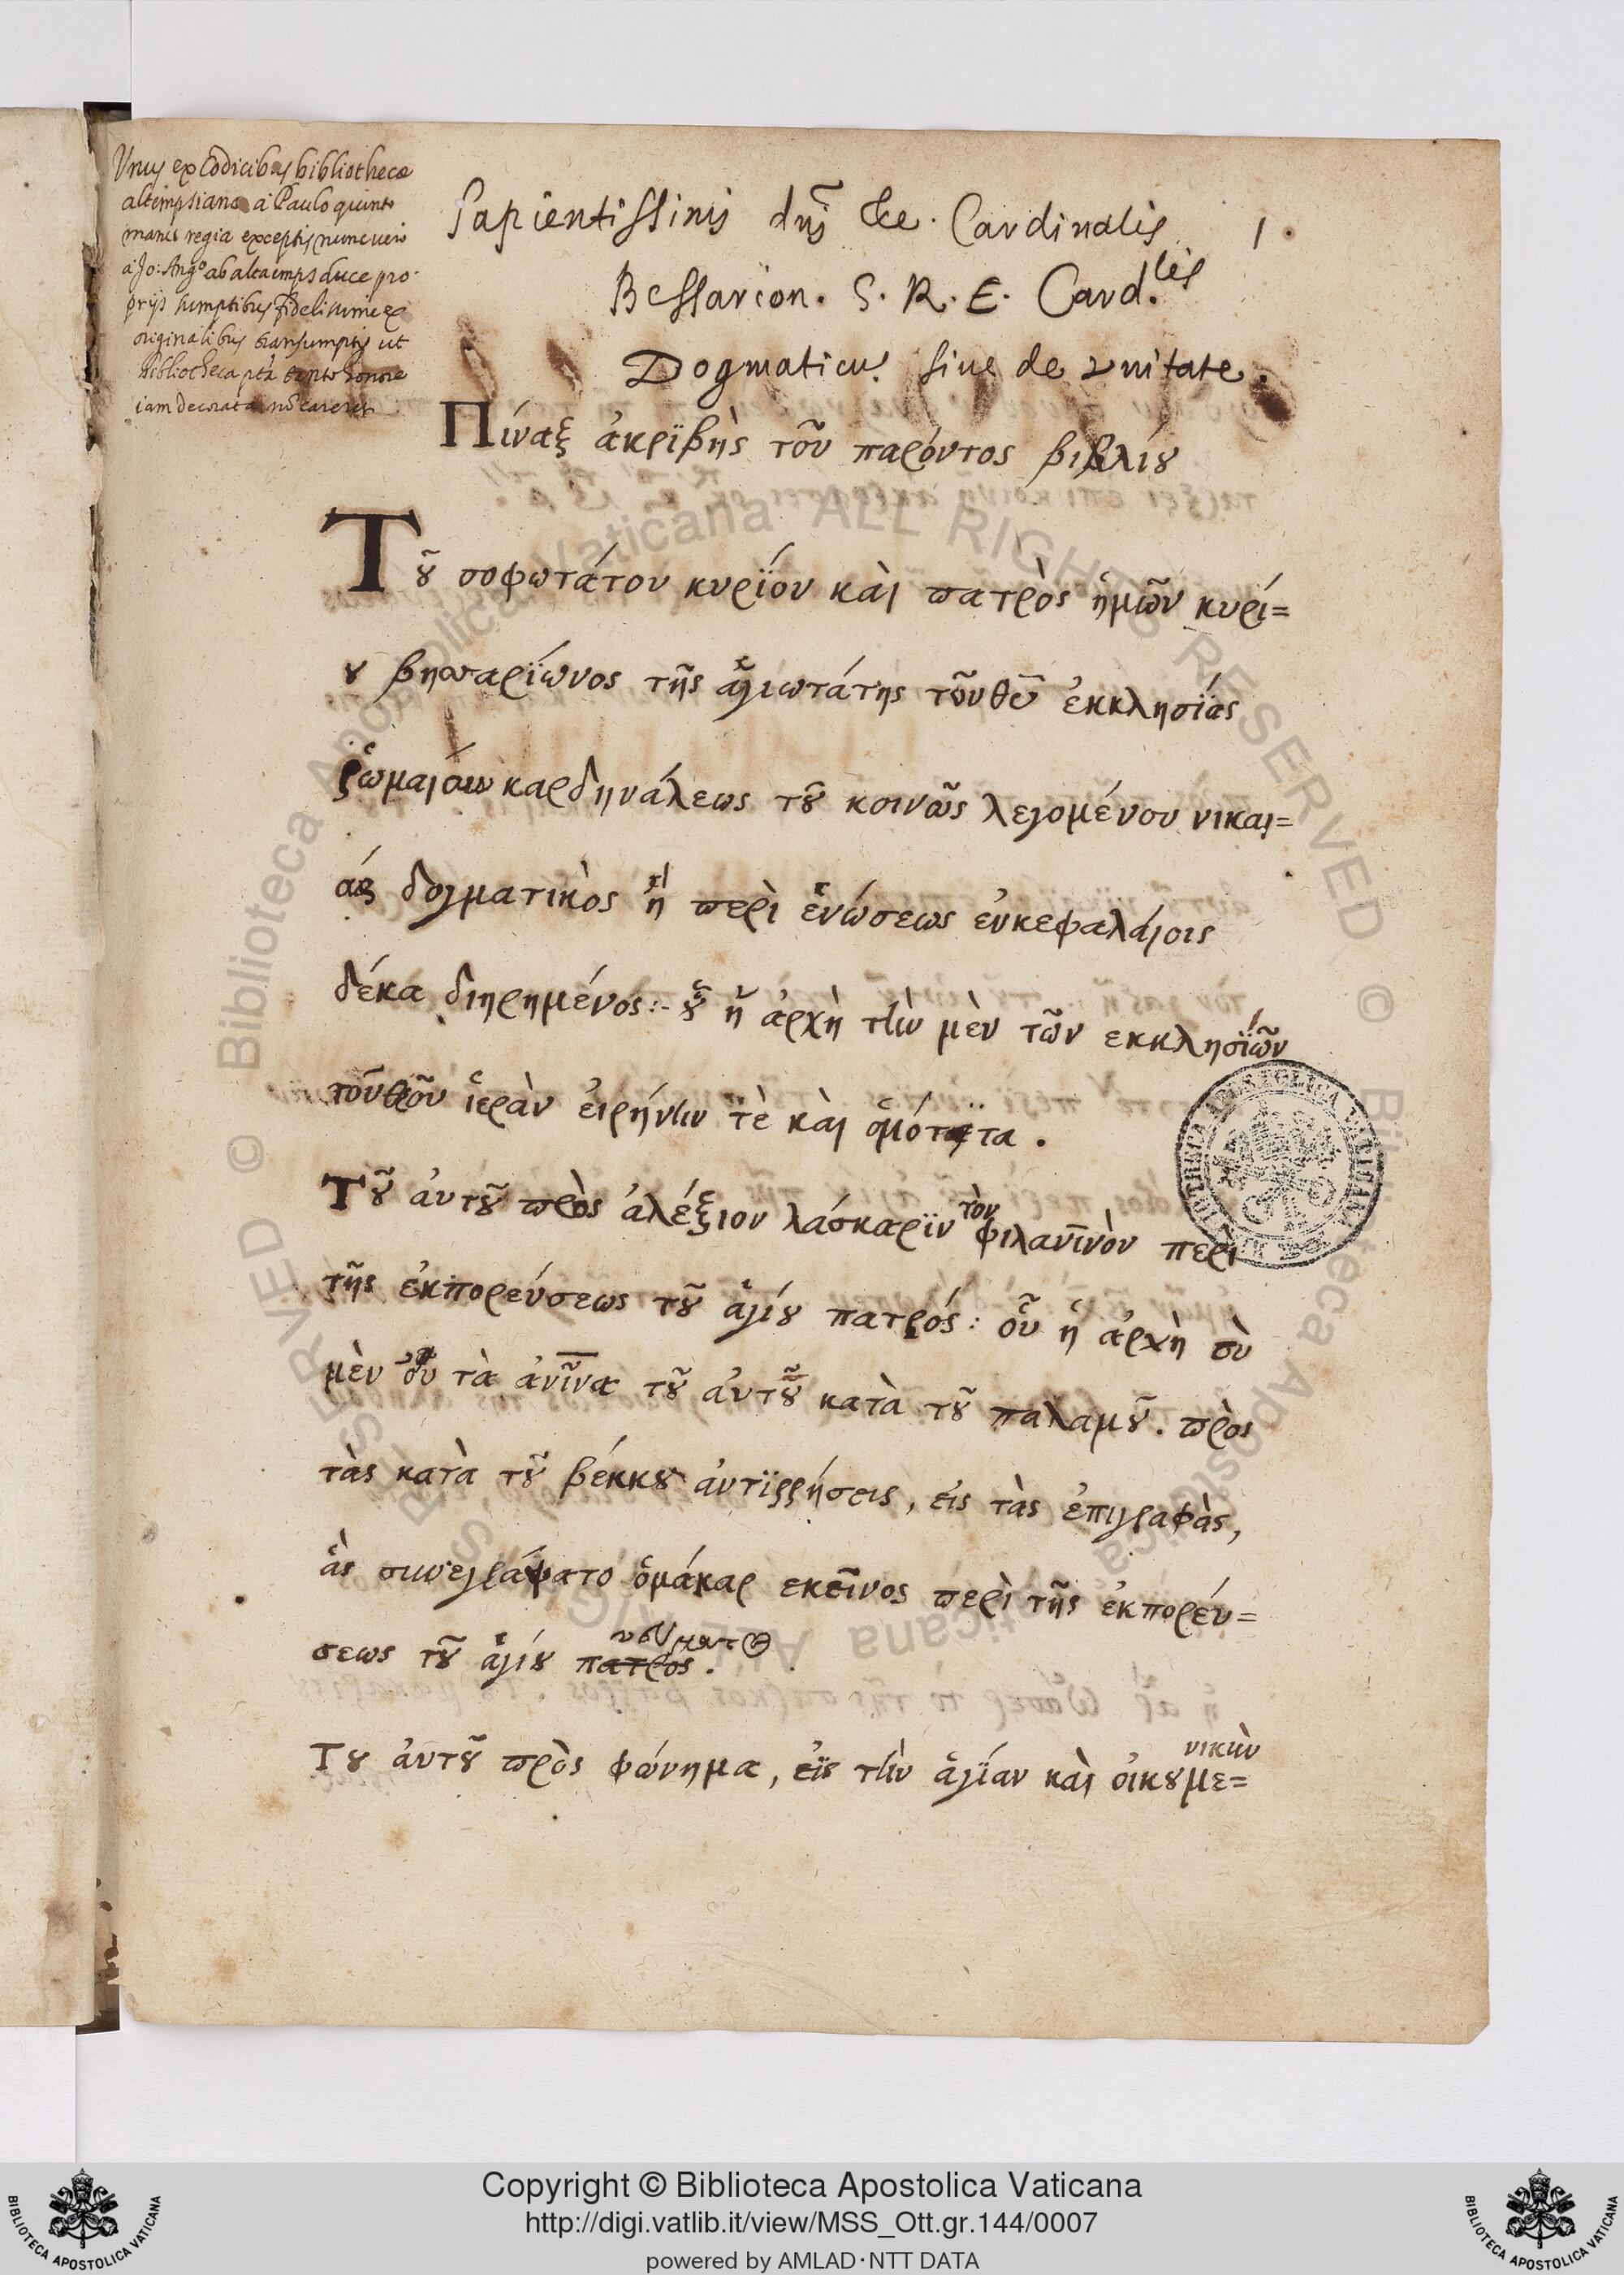 Vnus ex Codicibus bibliothecæ
altempsianæ à Paulo quinto
manu regia exceptis nunc vero
à Jo: Angº ab altaemps duce pro-
prijs sumptibus fidelissime ex
originalibus transumptis ut
bibliotheca pta tanto honore
iam decorata nō careret
Sapientissimi dnĩ &e. Cardinalis 1.
Bessarion. S. R. E. Card.lis
Dogmaticu. siue de vnitate.
Πίναξ ἀκρϊβὴς τοῦ παρόντος βιβλίȣ
Τȣ͂ σοφωτάτου κυρΐου κὰι πατρὸς ἡμῶν κυρί=
ȣ βησσαρΐωνος τῆς ἁγιωτάτης τοῦ θῦ ἐκκλησΐας
ῥωμαίων καρδηνάλεως τȣ͂ κοινῶς λεγομένου νικαι=
άς δογματικὸς ἢ περὶ ἑνώσεως ἐνκεφαλάιοις
δέκα διηρημένος:- ȣ̔͂ ἡ ἀρχὴ τὴν μὲν τῶν εκκλησϊῶν
τοῦ θοῦ ἱερὰν ἐιρήνην τὲ κὰι ὁμότητα.
Τȣ͂ ἀυτȣ͂ πρὸς ἀλέξιον λάσκαρϊν τὸν φιλανῑνὸν περὶ
τῆς ἐκπορεύσεως τȣ͂ ἁγίȣ πατρός: οὗ ἡ ἀρχὴ σὺ
μὲν οὖ τὰ ἀνῖνα τȣ͂ ἀυτȣ͂ κατὰ τȣ͂ παλαμȣ͂. πρὸς
τὰς κατὰ τȣ͂ βέκκȣ ἀντϊρρήσεις, εἰς τὰς ἐπιγραφὰς,
ἃς συνεγράψατο ὁμάκαρ εκεῖνος περὶ τῆς ἐκπορέυ=
σεως τȣ͂ ἁγίȣ πατρος.
Τȣ ἀυτȣ͂ πρὸς φώνημα, εἰς τὴν ἁγΐαν κὰι ὀικȣμε=
νικὴν
Copyright © Biblioteca Apostolica Vaticana
http://digi.vatlib.it/view/MSS_Ott.gr.144/0007
powered by AMLAD·NTT DATA